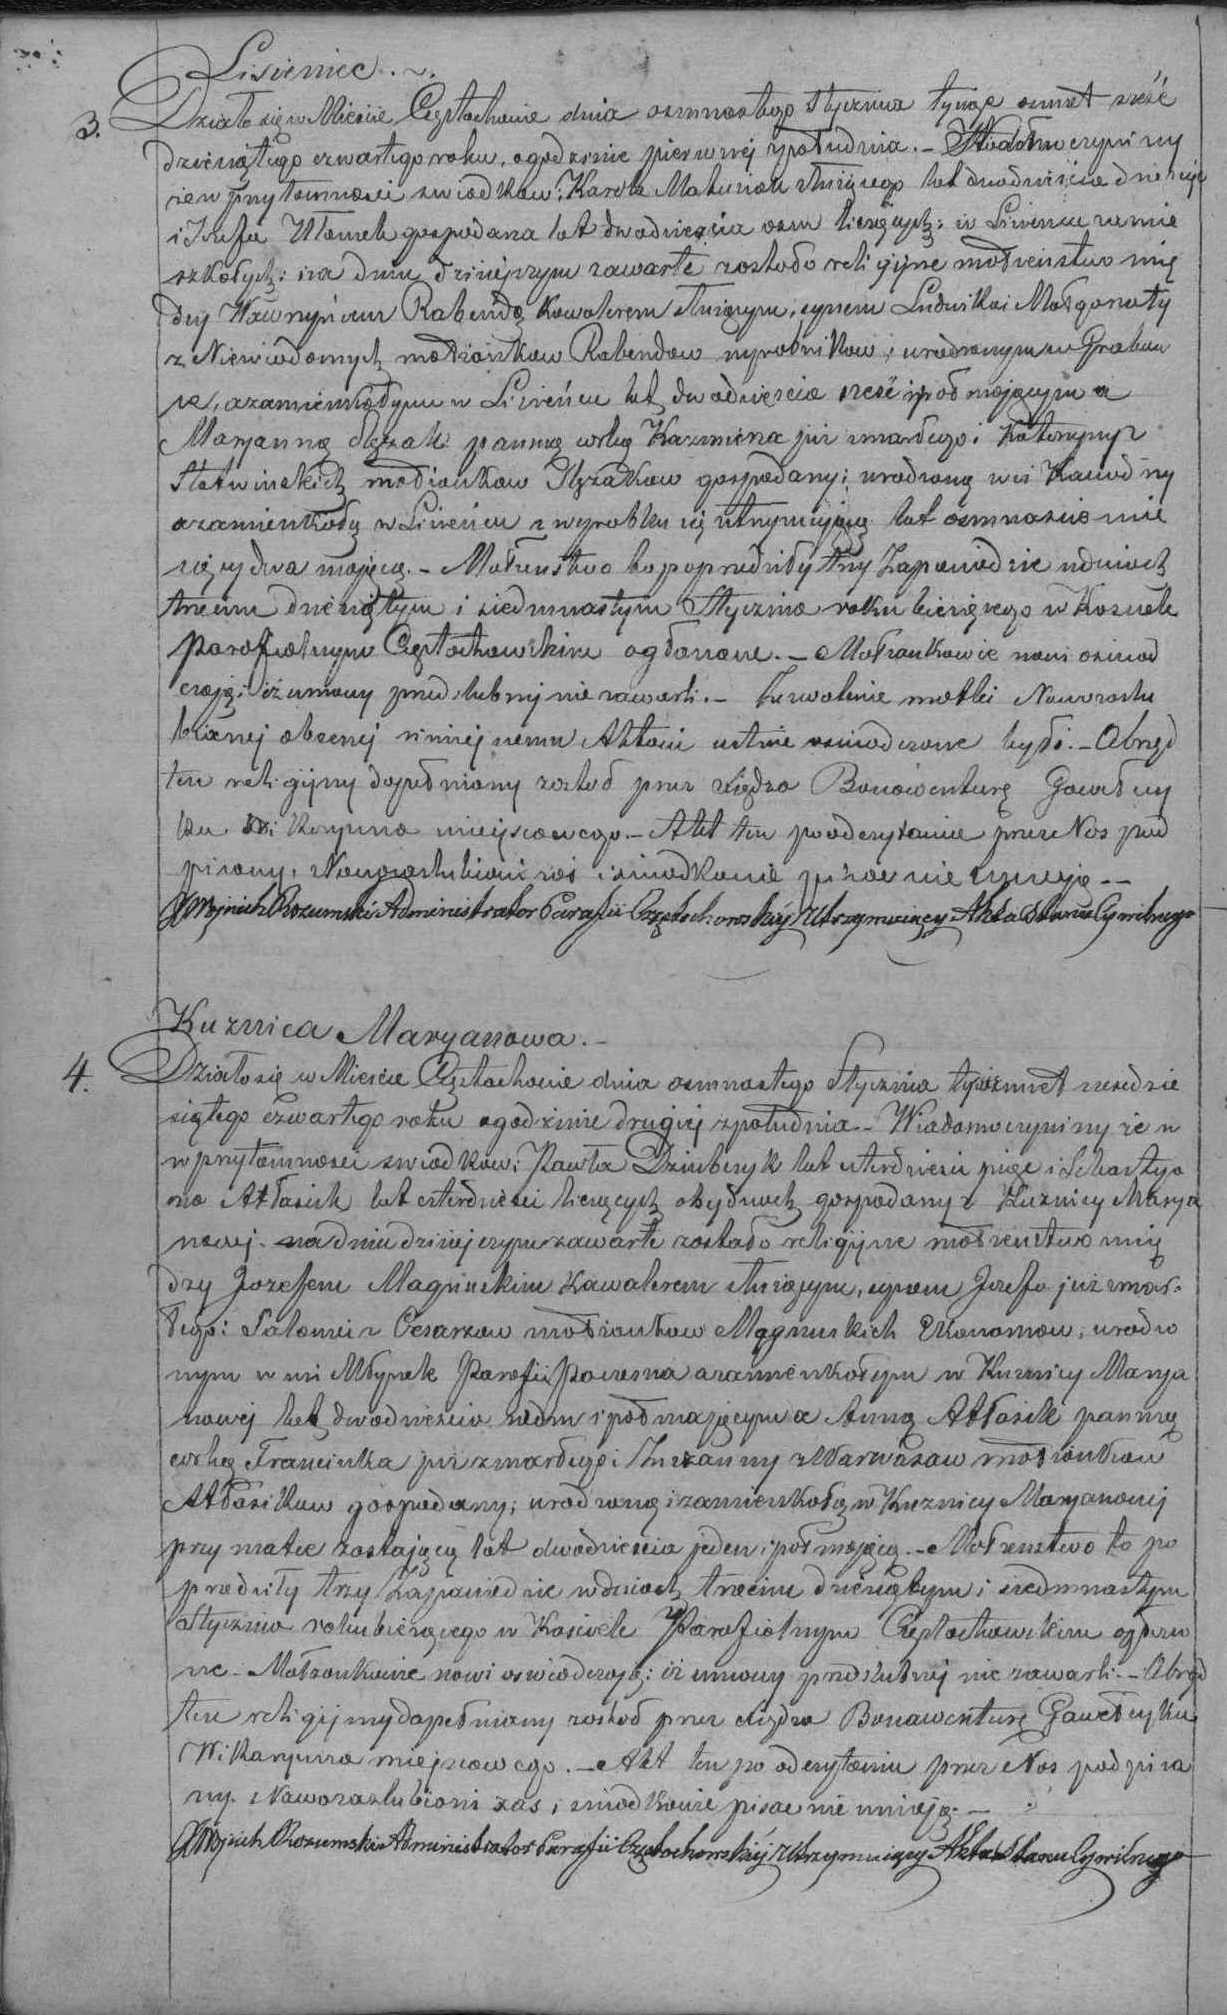 Lisieniec.
3. Działo się w Mieście Częstochowie dnia osmnastego Stycznia tysiąc osmset sześć
dziesiątego czwartego roku, o godzinie pierwszej z południa. - Wiadomo czynimy
że w przytomności swiadków: Karola Matusiak służącego lat dwadzieścia dziewięć
i Józefa Ułamek gospodarza lat dwadzieścia osm liczących; w Lisieńcu zamie
szkałych; na dniu dzisiejszym zawarte zostało religijne małżeństwo mię
dzy Wawrzyńcem Rabendą Kawalerem służącym, synem Ludwika i Małgorzaty
z Niewiadomych małżonków Rabendow wyrobników; urodzonym w Grabów
ce, a zamieszkałym w Lisieńcu lat dwadzieścia sześć i pół mającym a
Maryanną Ślęzak panną córką Kazmierza już zmarłego i Katarzyny z
małżonków Ślęzaków gospodarzy; urodzoną w wsi Kawodrzy
a zamieszkałą w Lisieńcu z wyrobku się utrzymującą lat osmnaście mie
sięcy dwa mającą. - Małżeństwo to poprzedziły trzy Zapowiedzie w dniach
trzecim dziesiątym i siedmnastym Stycznia roku bieżącego w Kościele
Parafialnym Częstochowskim ogłoszone. - Małżonkowie nowi oświad
czają; iż umowy przedslubnej nie zawarli. - Zezwolenie matki Nowozaslu
bionej obecnej niniejszemu Aktowi ustnie oświadczone było. - Obrzęd
ten religijny dopełniony został przez Księdza Bonawenturę Gawełczy
ka Wikaryusza miejscowego. - Akt ten po odczytaniu przez Nas pod
pisany, Nowozaslubieni zaś i świadkowie pisać nie umieją. -
X Wojciech Rozumski Administrator Parafii Częstochowskiéy Utrzymuiący Akta Stanu Cywilnego

Kuznica Maryanowa. -
4. Działo się w Mieście Częstochowie dnia osmnastego Stycznia tysiąc osmset sześćdzie
siątego czwartego roku o godzinie drugiej z południa. - Wiadomo czynimy że w
w przytomności swiadków; Pawła Dziubczyk lat czterdzieści pięć i Sebastya
na Atłasik lat czterdzieści liczących obydwóch gospodarzy z Kuznicy Marya
nowej. na dniu dzisiejszym zawarte zostało religijne małżeństwo mię
dzy Jozefem Magnuskim Kawalerem służącym, synem Jozefa już zmar-
łego i Salomei z Cesarzow małżonków Magnuskich Ekonomow, urodzo
nym w wsi Młynek Parafii a zamieszkałym w Kuznicy Marya
nowej lat dwadzieścia siedm i pół mającym a Anną Atłasik panną
córką Franciszka już zmarłego i Zuzanny z Warwasow małżonków
Atłasikow gospodarzy; urodzoną i zamieszkałą w Kuznicy Maryanowej
przy matce zostającą lat dwadzieścia jeden i pół mającą. - Małżenstwo to po
przedziły trzy Zapowiedzie w dniach trzecim dziesiątym i siedmnastym
Stycznia roku bieżącego w Kościele Parafialnym Częstochowskim ogłoszo
ne - Małżonkowie nowi oswiadczają; iż umowy przedslubnej nie zawarli. - Obrzęd
ten religijny dopełniony został przez Księdza Bonawenturę Gawełczyka
Wikaryusza miejscowego. - Akt ten po odczytaniu przez Nas podpisa
ny. Nowozaslubieni zaś i swiadkowie pisać nie umieją. -
X Wojciech Rozumski Administrator Parafii Częstochowskiéy Utrzymuiący Akta Stanu Cywilnego